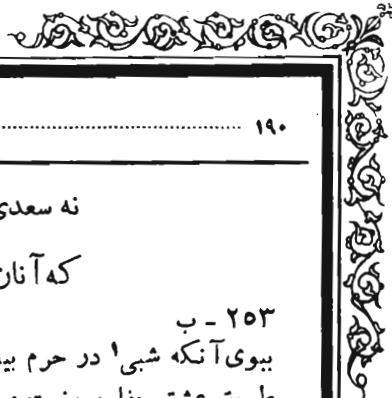 ۱۹۰
نه سعدی
که آنان
۲۵۳ - ب
ببوی آنکه شبی۱ در حرم